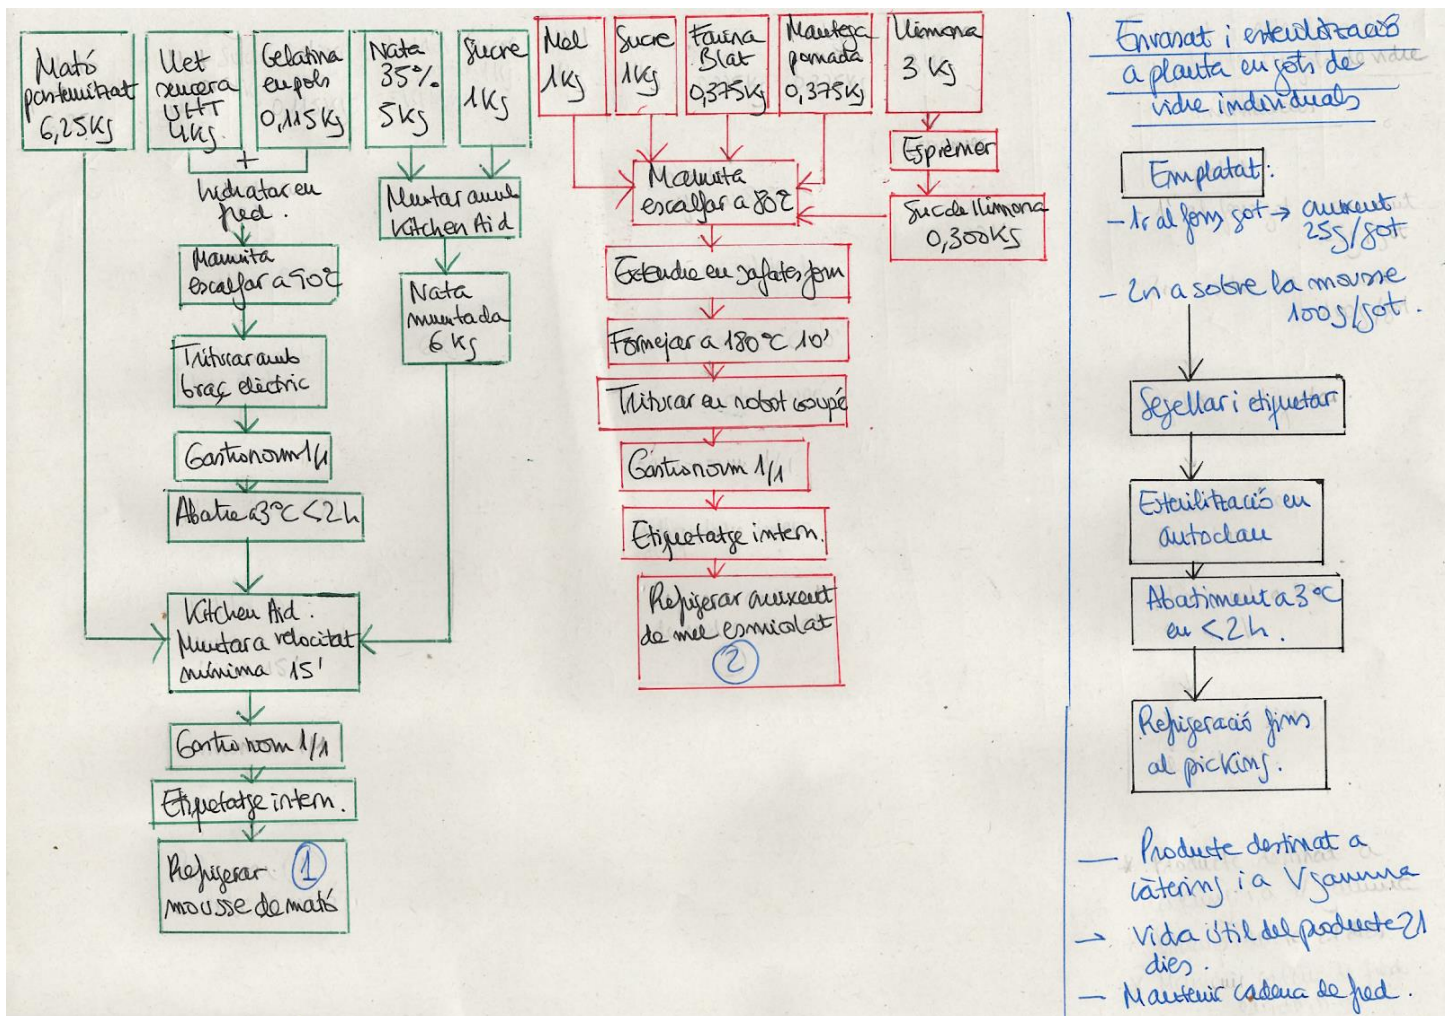 Mató
pasteuritzat
6,25Kg
Llet
sencera
UHT
4Kg
Gelatina
en pols
0,115Kg
Nata
35%
5Kg
Sucre
1Kg
+
hidratar en
fred.
Marmita
escalfar a 90ºC
Triturar amb
braç elèctric
Gastronorm 1/1
Abatre a 3ºC <2h
Muntar amb
Kitchen Aid
Nata
muntada
6 Kg
Kitchen Aid.
Muntar a velocitat
mínima 15'
Gastronorm 1/1
Etiquetatge intern.
Refrigerar 1
mousse de mató
Mel
1Kg
Sucre
1Kg
Farina
Blat
0,375Kg
Mantega
pomada
0,375Kg
Llimona
3 Kg
Esprémer
Suc de llimona
0,300Kg
Marmita
escalfar a 80ºC
Extendre en safates forn
Fornejar a 180ºC 10'
Triturar en robot coupé
Gastronorm 1/1
Etiquetatge intern.
Refrigerar cruixent
de mel esmicolat
2
Envasat i esterilització
a planta en gots de
vidre individuals
Emplatat:
- 1r al fons got → cruixent
25g/got
- 2n a sobre la mousse
100g/got.
Segellar i etiquetar
Esterilització en
autoclau
Abatiment a 3ºC
en <2h.
Refrigeració fins
al picking.
— Producte destinat a
càtering i a V gamma
→ Vida útil del producte 21
dies.
— Mantenir cadena de fred.